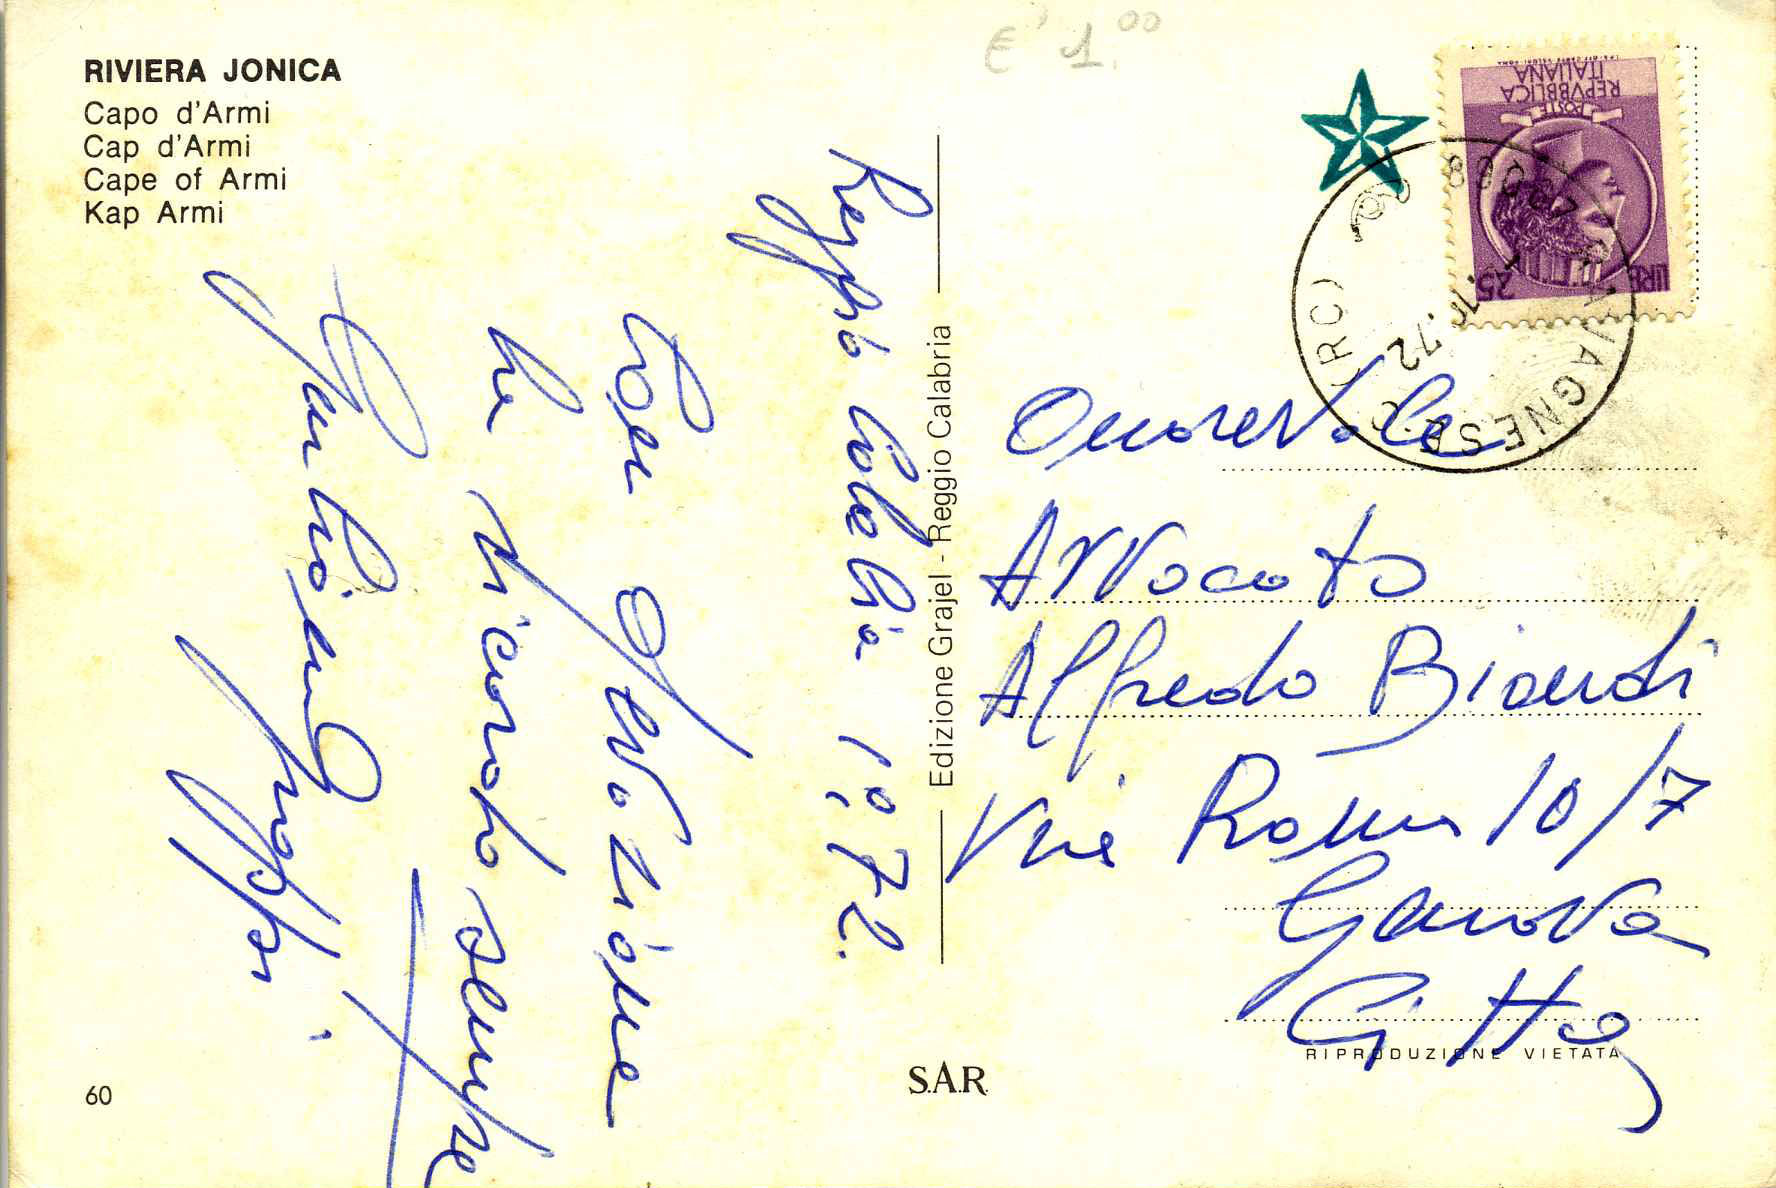 RIVIERA JONICA
Capo d'Armi
Cap d'Armi
Cape of Armi
Kap Armi
€ 1.00
POSTE
REPVBBLICA
ITALIANA
LIRE 25
BAGNESE C. (RC)
72
Reggio Calabria 1, 72.
Con devozione
la ricordo sempre
Edizione Grajel - Reggio Calabria
Onorevole
Avvocato
Alfredo Biondi
Via Roma 10/7
Genova
Città
RIPRODUZIONE VIETATA
S.A.R
60